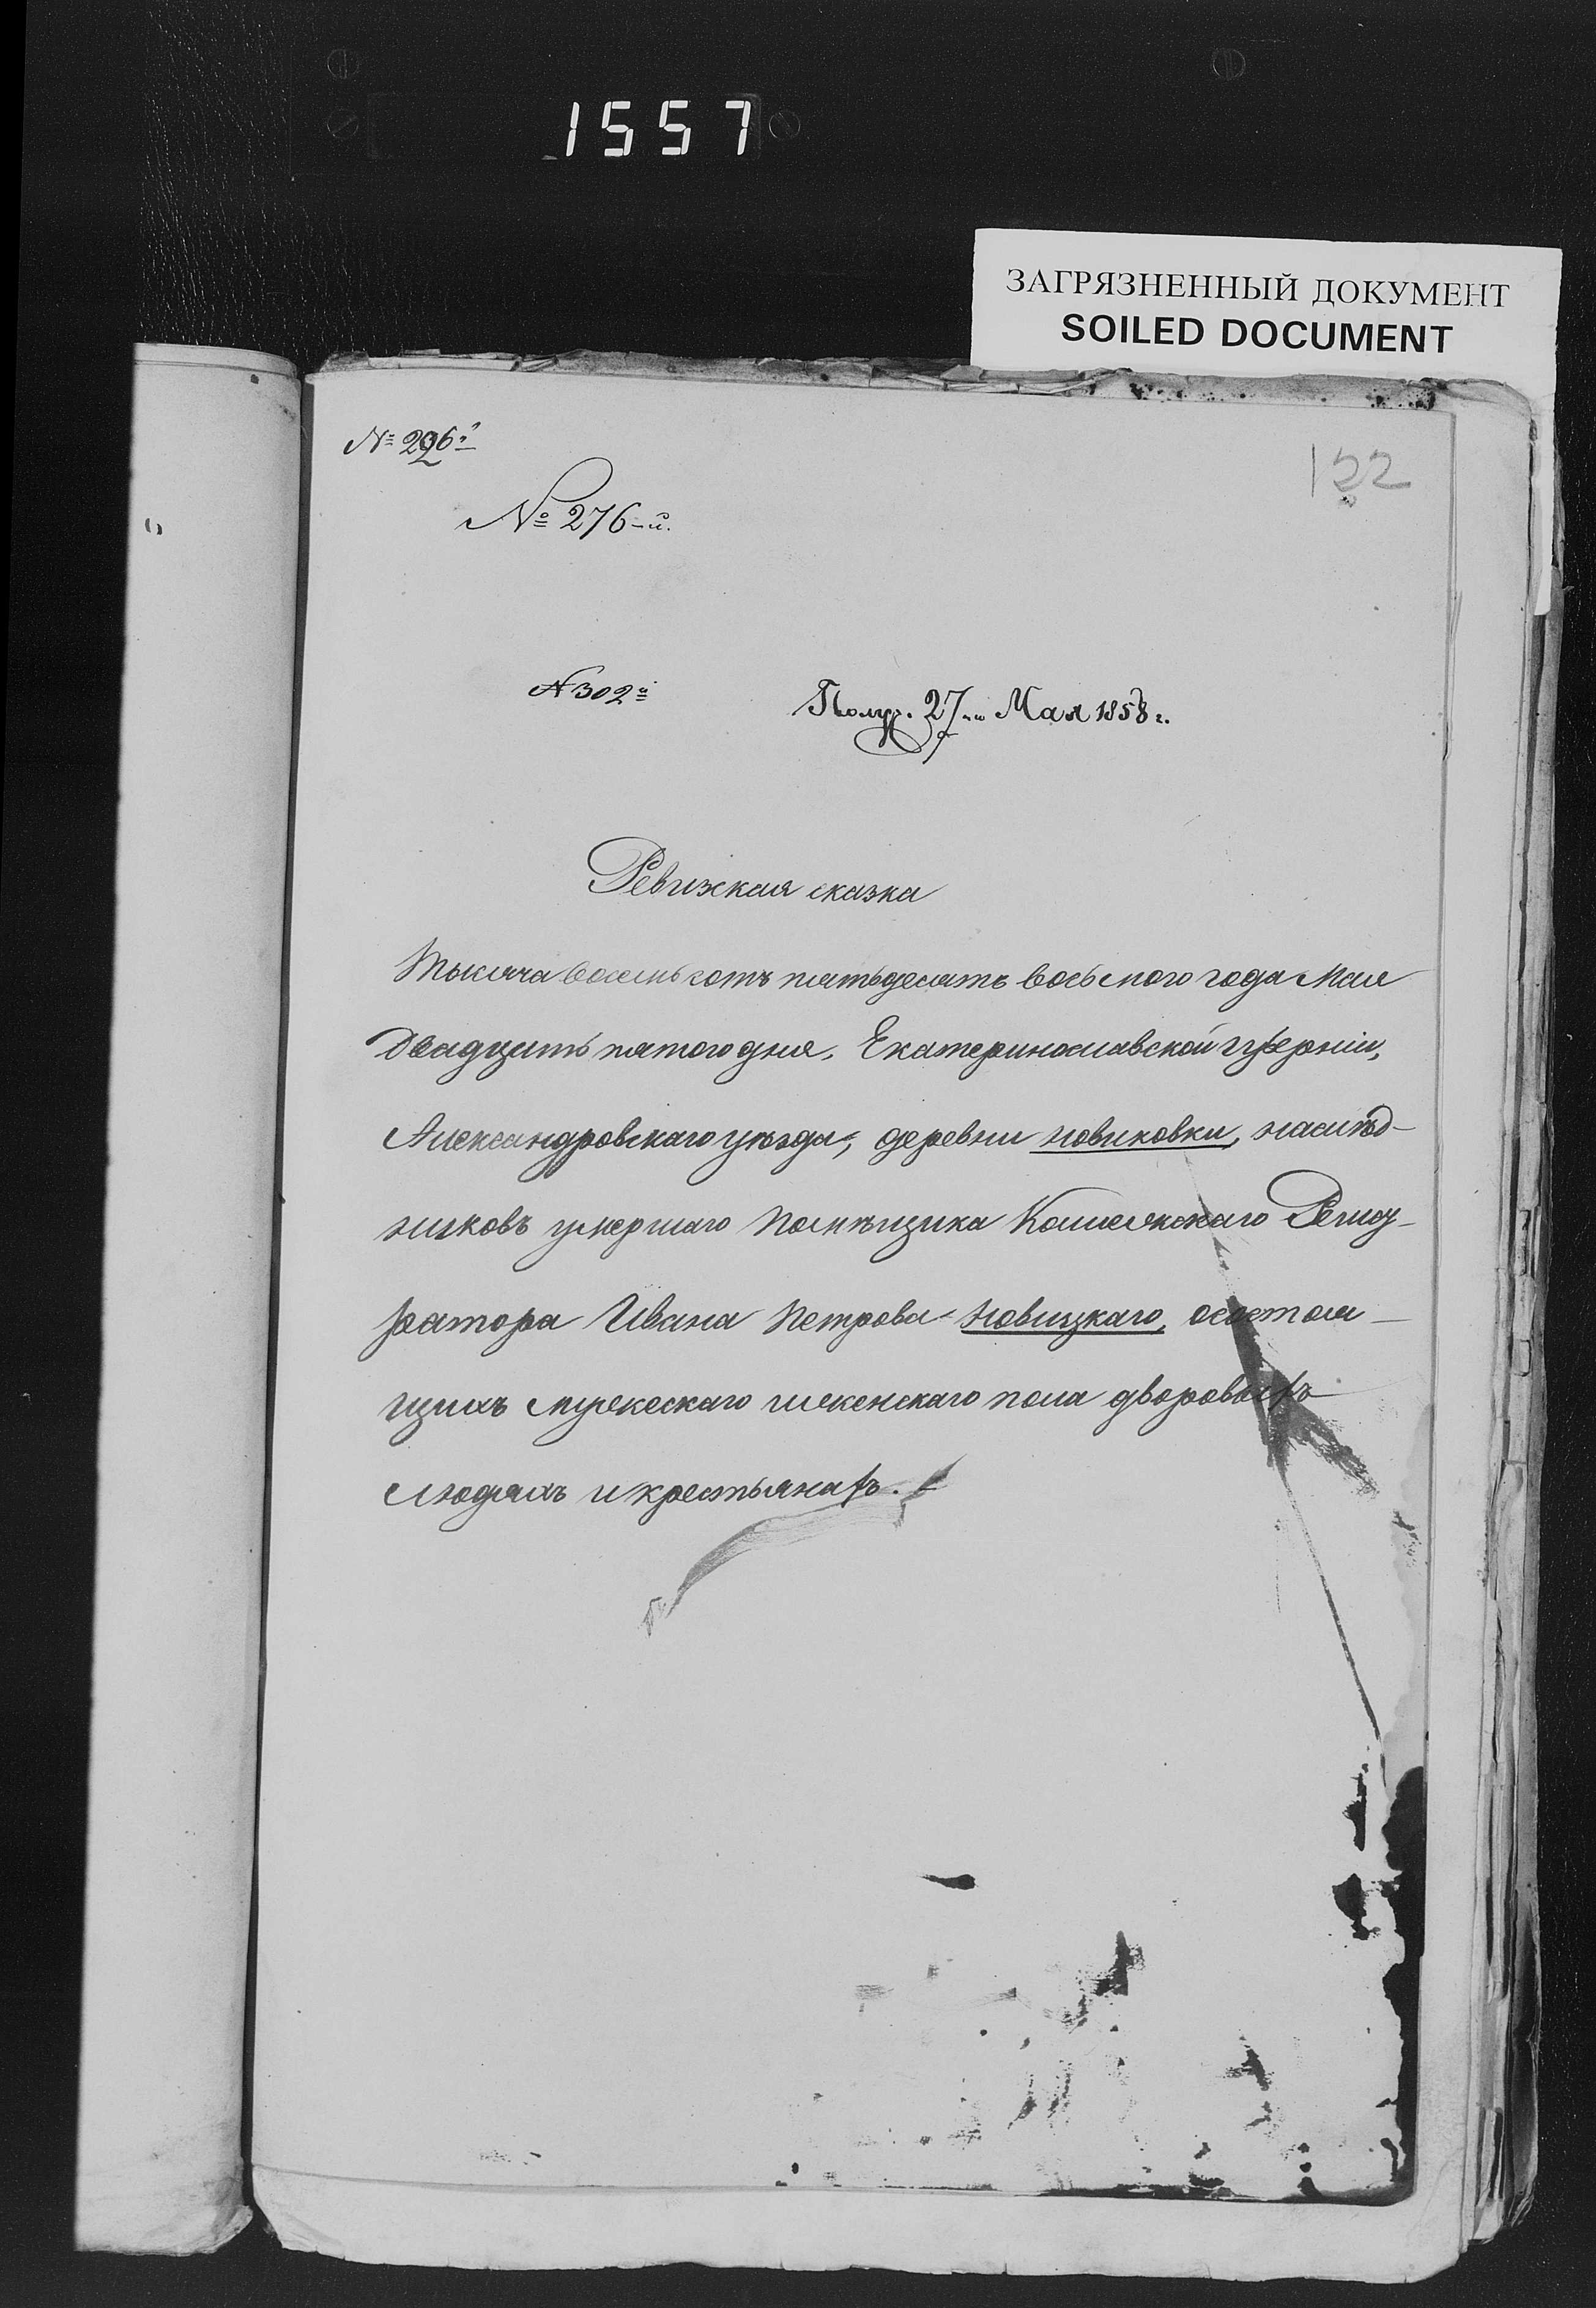 1557
ЗАГРЯЗНЕННЫЙ ДОКУМЕНТ
SOILED DOCUMENT
№ 296й
122
№ 276-й.
№ 302й
Получ. 27го Мая 1858 г.
Ревижская сказка
Тысяча восемьсотъ пятьдесятъ восьмого года Мая
Двадцать пятого дня, Екатеринославской губерніи,
Александровскаго уѣзда, деревни новиковки, наслѣд-
никовъ умершаго Помѣщика Коллежскаго Регист-
ратора Ивана Петрова Новицкаго, осостоя-
щихъ мужескаго и женскаго пола дворовыхъ
людяхъ и крестьянахъ.